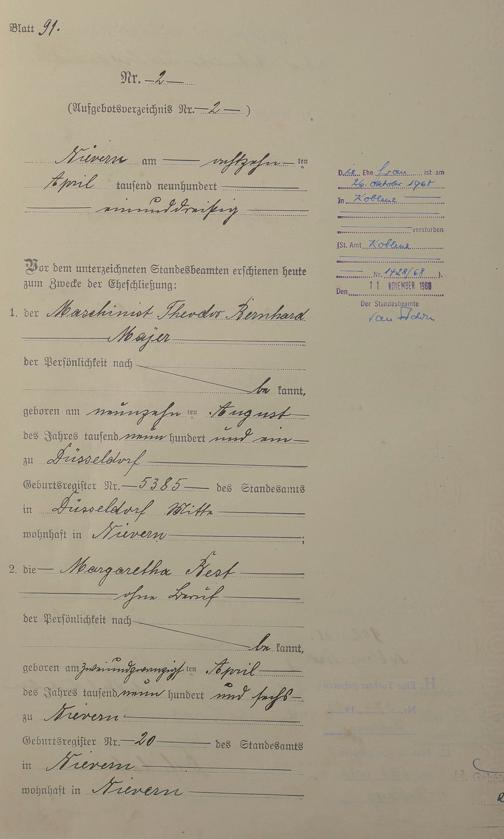 Blatt 91.
Nr. 2
(Aufgebotsverzeichnis Nr. 2 )
Nievern am achtzehn ten
April tausend neunhundert
einunddreißig
Vor dem unterzeichneten Standesbeamten erschienen heute
zum Zwecke der Eheschließung:
1. der Maschinist Theodor Bernhard
Majer
der Persönlichkeit nach
be kannt,
geboren am neunzehn ten August
des Jahres tausend neun hundert und ein
zu Düsseldorf
Geburtsregister Nr. 5385 des Standesamts
in Düsseldorf Mitte
wohnhaft in Nievern ;
2. die Margaretha Best
ohne Beruf
der Persönlichkeit nach
be kannt,
geboren am zweiundzwanzigst ten April
des Jahres tausend neun hundert und sechs
zu Nievern
Geburtsregister Nr. 20 des Standesamts
in Nievern
wohnhaft in Nievern
Die Ehe frau ist am
26. Oktober 1968
in Koblenz
verstorben
(St. Amt Koblenz
Nr. 1428/68 ).
Den 11. NOVEMBER 1968
Der Standesbeamte